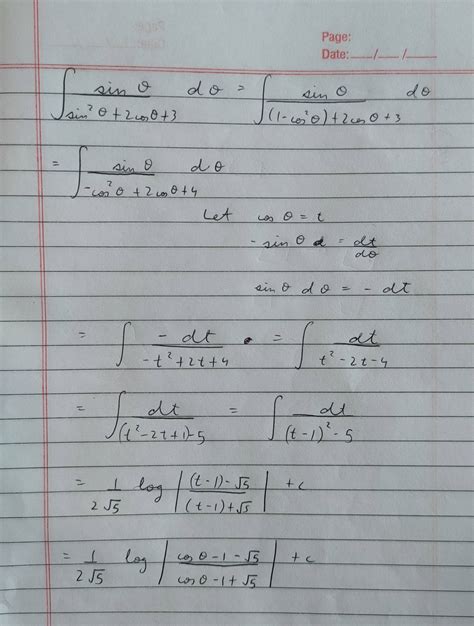 Page:
Date: ___/___/___
∫ sin θ / (sin² θ + 2cosθ + 3) dθ = ∫ sin θ / ((1-cos²θ) + 2cosθ + 3) dθ
= ∫ sin θ / (-cos²θ + 2cosθ + 4) dθ
Let cos θ = t
- sin θ d = dt/dθ
sin θ dθ = - dt
= ∫ - dt / (-t² + 2t + 4) = ∫ dt / (t² - 2t - 4)
= ∫ dt / ((t² - 2t + 1) - 5) = ∫ dt / ((t - 1)² - 5)
= 1/(2√5) log | ((t - 1) - √5) / ((t - 1) + √5) | + c
= 1/(2√5) log | (cosθ - 1 - √5) / (cosθ - 1 + √5) | + c